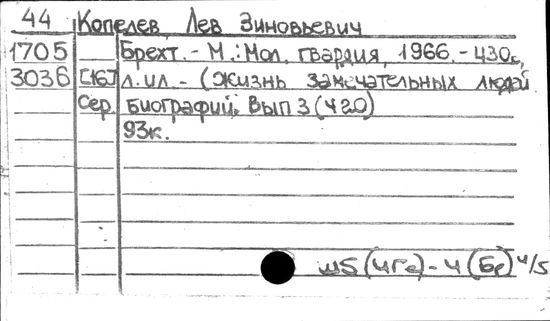 44 Копелев, Лев Зиновьевич
1705 Брехт. - М.: Мол. гвардия, 1966. - 430с,
3036 [16] л. ил. - (Жизнь замечательных людей.
Сер. биографий. Вып 3 (420)
93к.
Ш5(4Ге)-4(Бр) 4/5